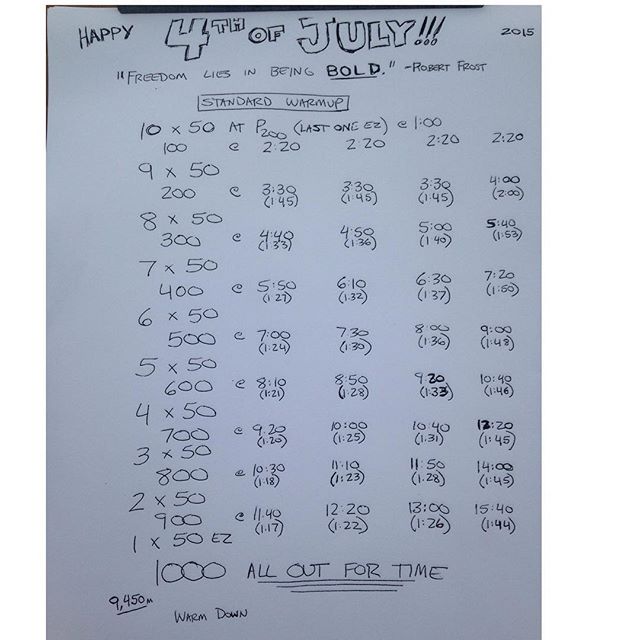 HAPPY 4TH OF JULY!!! 2015
"FREEDOM LIES IN BEING BOLD." -ROBERT FROST
STANDARD WARMUP
10 x 50 AT P200 (LAST ONE EZ) @ 1:00
100 @ 2:20 2:20 2:20 2:20
9 x 50
200 @ 3:30 3:30 3:30 4:00
(1:45) (1:45) (1:45) (2:00)
8 x 50
300 @ 4:40 4:50 5:00 5:40
(1:33) (1:36) (1:40) (1:53)
7 x 50
400 @ 5:50 6:10 6:30 7:20
(1:27) (1:32) (1:37) (1:50)
6 x 50
500 @ 7:00 7:30 8:00 9:00
(1:24) (1:30) (1:36) (1:48)
5 x 50
600 @ 8:10 8:50 9:20 10:40
(1:21) (1:28) (1:33) (1:46)
4 x 50
700 @ 9:20 10:00 10:40 12:20
(1:20) (1:25) (1:31) (1:45)
3 x 50
800 @ 10:30 11:10 11:50 14:00
(1:18) (1:23) (1:28) (1:45)
2 x 50
900 @ 11:40 12:20 13:00 15:40
(1:17) (1:22) (1:26) (1:44)
1 x 50 EZ
1000 ALL OUT FOR TIME
9,450m
WARM DOWN